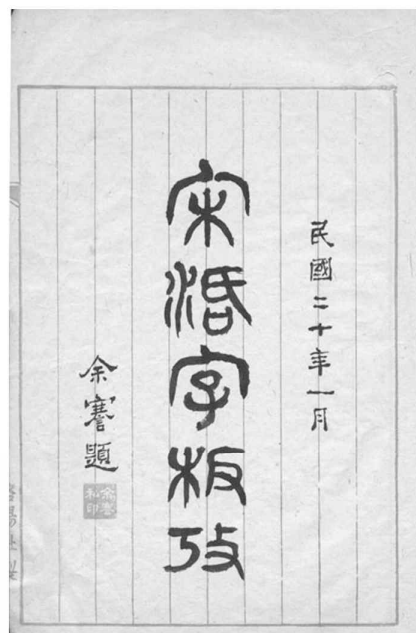 民國二十年一月
宋活字板攷
余謇題
余謇私印